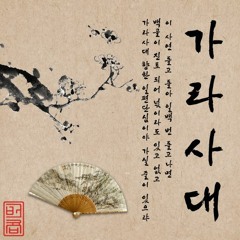 가라사대
이 사연 듣고 일백 번 듣고나면
백골이 진토 되어 넋이라도 있고 없고
가라사대 향한 일편단심이야 가실 줄이 있으랴